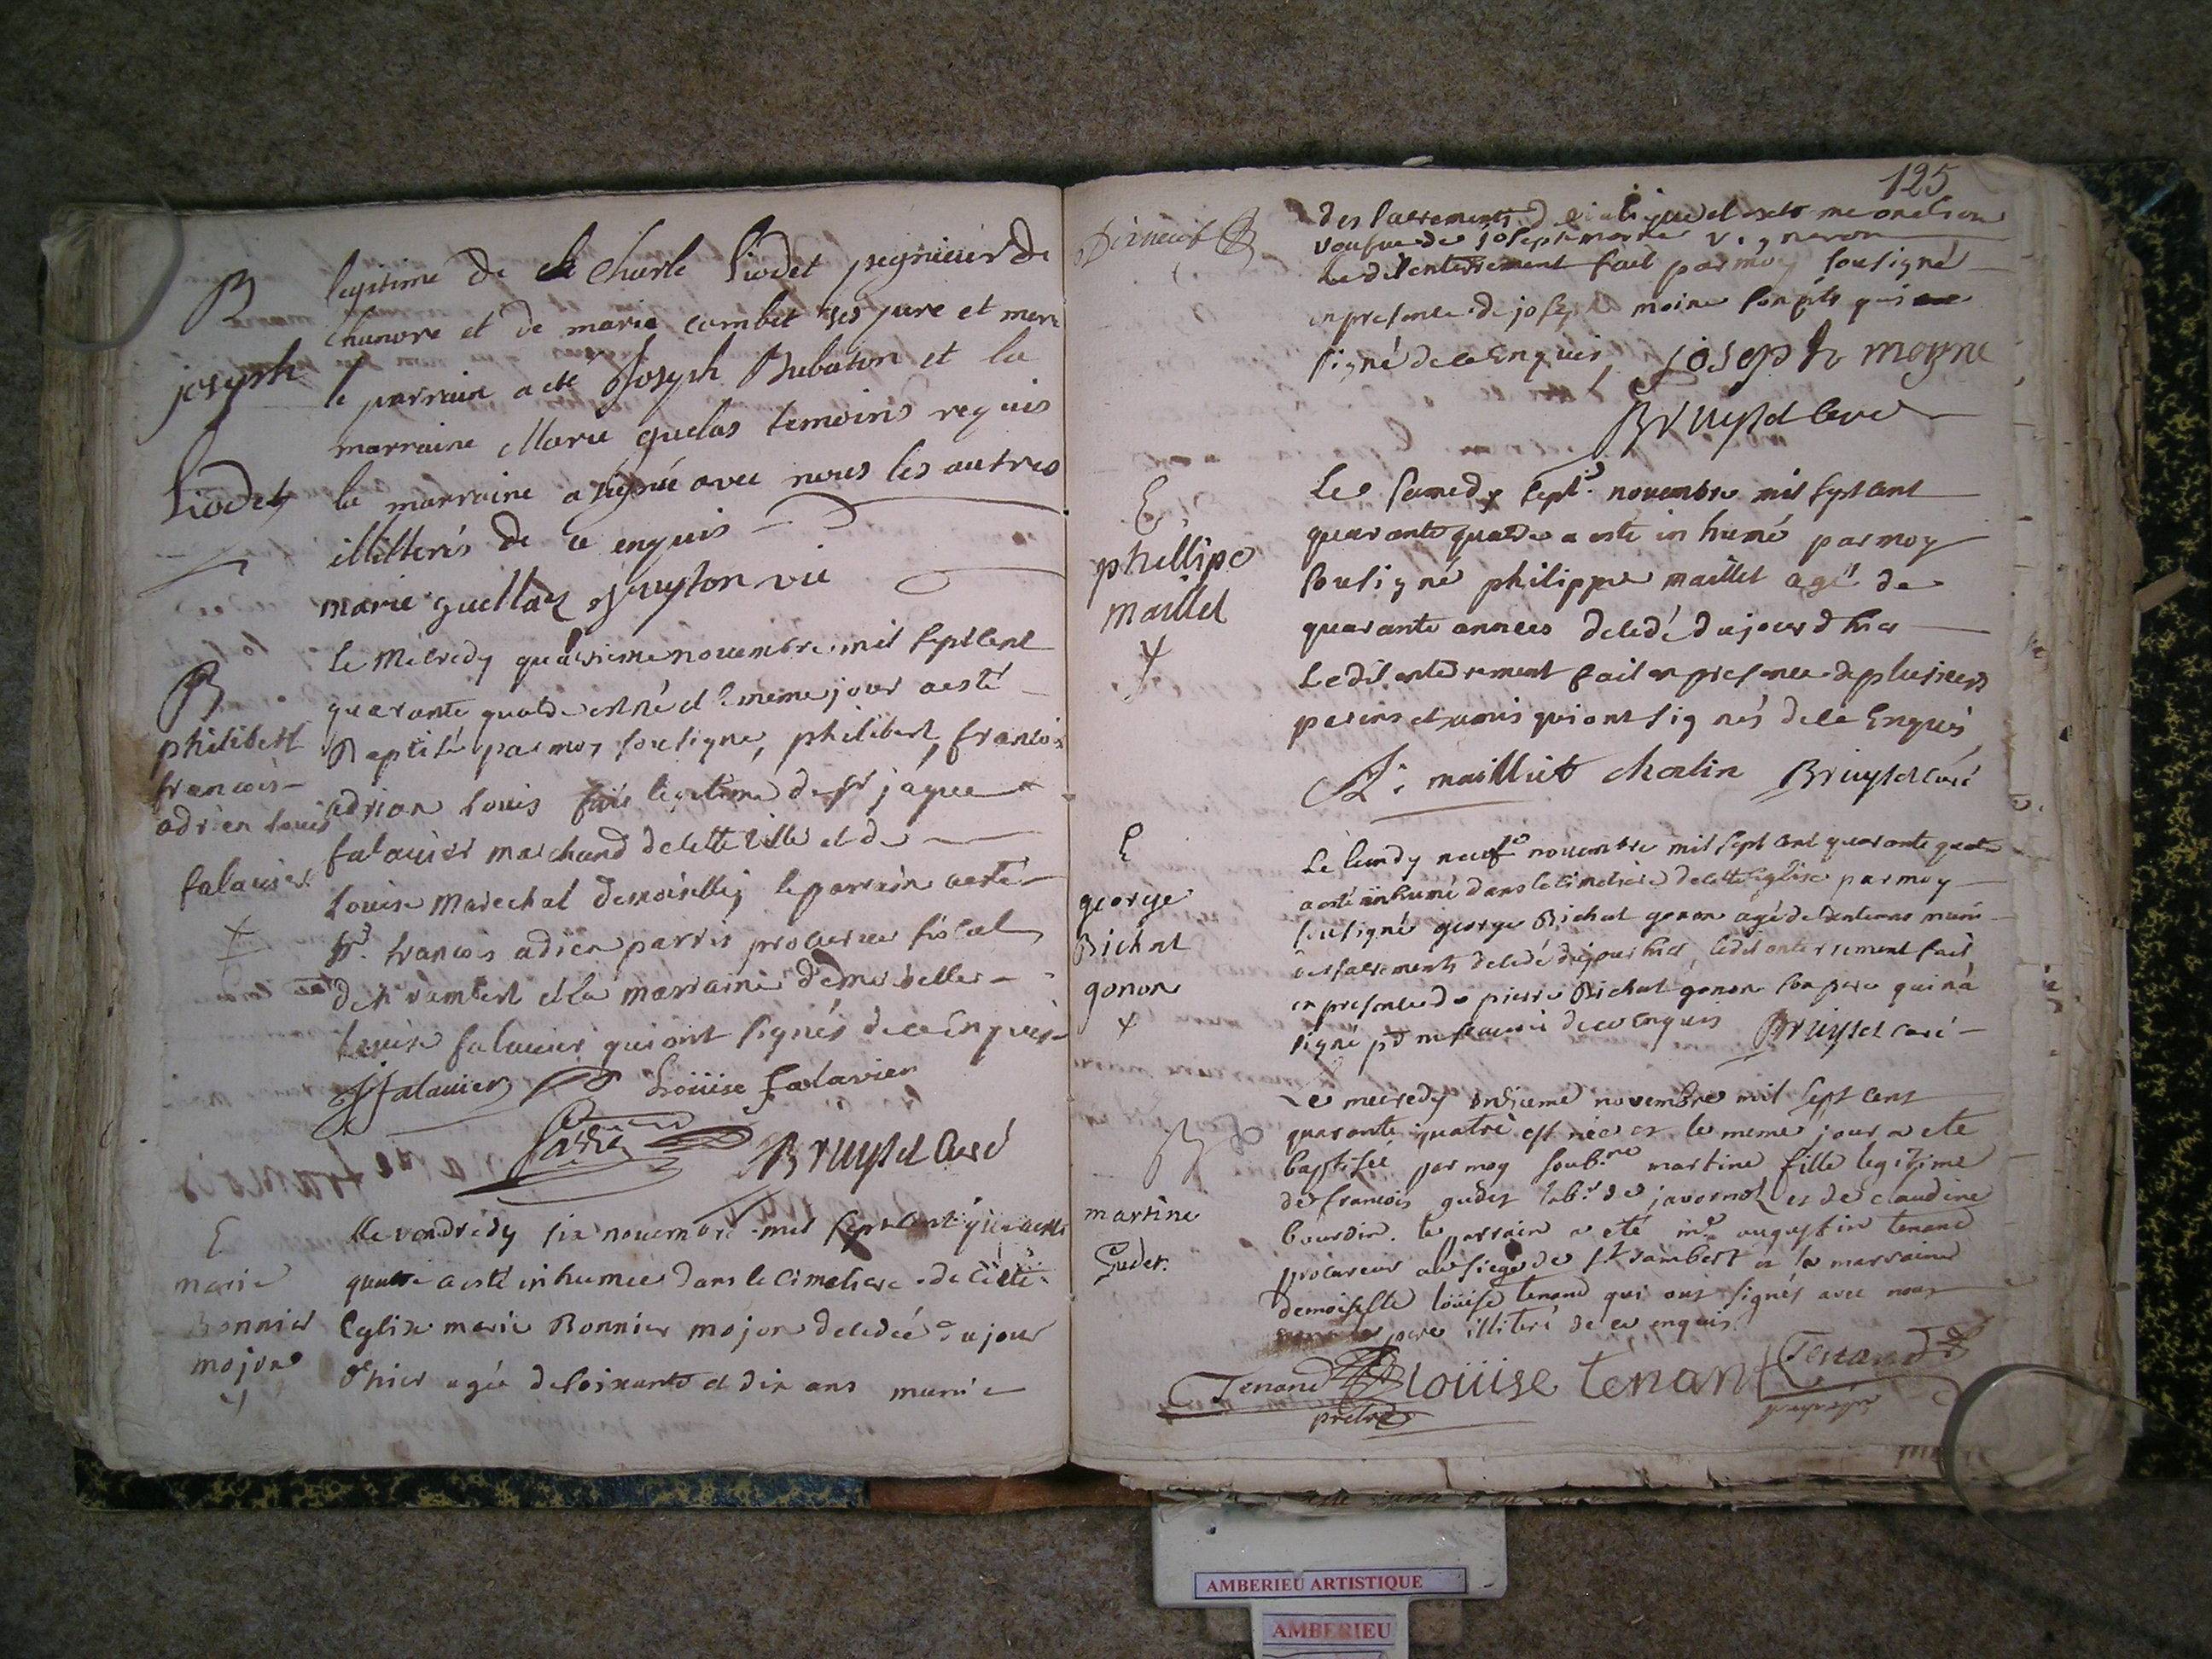 B
joseph
Liodet
legitime de Charle Liodet peignieur de
chanvre et de marie combet ses pere et mere
le parrain a eté Joseph Bubaton et la
marraine Marie guelas temoins requis
la marraine a signé avec nous les autres
illitterés de ce enquis
marie guellaz Bruyson vic
B
philibert
francois
adrien Louis
falavier
Le Mecredy quatrieme novembre mil sept cent
quarante quatre est né et le meme jour a esté
Baptisé par moy sousigné, philibert, francois
adrien Louis fils legitime de sr jaque
falavier marchand de cette ville et de
Louise Marechal demoiselle, le parrain a esté
sr. francois adrien parris procureur fiscal
de st rambert et la marraine demoiselle
Louise falavier qui ont signés de ce Enquis
falavier Loüise falavier
Bruyset Curé
E
marie
Bonnier
mojon
Le vendredy six novembre mil sept cent quarante
quatre a esté inhumee dans le cimetiere de cette
Eglise marie Bonnier mojon decedée du jour
d'hier agée de soixante et dix ans munie
125
des sacrements de viatique et extreme onction
vousve de joseph moine vigneron
le dit enterrement fait par moy sousigné
en presence de joseph moine son fils qui
signé de ce Enquis joseph moyne
Bruyset Curé
E
phellipe
maillet
Le samedy sept.e novembre mil sept cent
quarante quatre a esté inhumé par moy
sousigné philippe maillet agé de
quarante années decedé du jour d hier
Le dit enterrement fait en presence de plusieurs
parens et amis qui ont signés de ce Enquis
mailliet chatin Bruyset Curé
E
george
Bichat
gonon
Le lundy neufe novembre mil sept cent quarante quatre
a esté inhumé dans le cimetiere de cette Eglise par moy
sousigné george Bichat gonon agé de trente ans muni
des sacrements decedé du jour hier, le dit enterrement fait
en presence de pierre Bichat gonon son pere qui n'a
signé pr ne scavoir de ce Enquis Bruyset curé
B
martine
Gudet
Le mecredy onzieme novembre mil sept cent
quarante quatre est née et le meme jour a eté
baptisée par moy soub.né martine fille legitime
de francois gudet lab.r de javornoz et de claudine
bourdin. le parrain a eté m.e augustin tenand
procureur au siege de st rambert et la marraine
demoiselle loüise tenand qui ont signés avec nous
pere illiteré de ce enquis
Tenand loüise tenant Tenand
pretre
AMBERIEU ARTISTIQUE
AMBERIEU